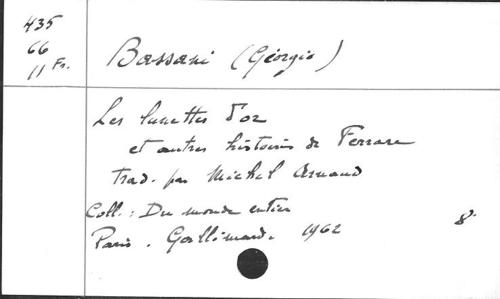 435
66
11 Fr.
Bassani (Giorgio)
Les lunettes d'or
et autres histoires de Ferrare
trad. par Michel Arnaud
Coll. : Du monde entier
Paris. Gallimard. 1962
8°